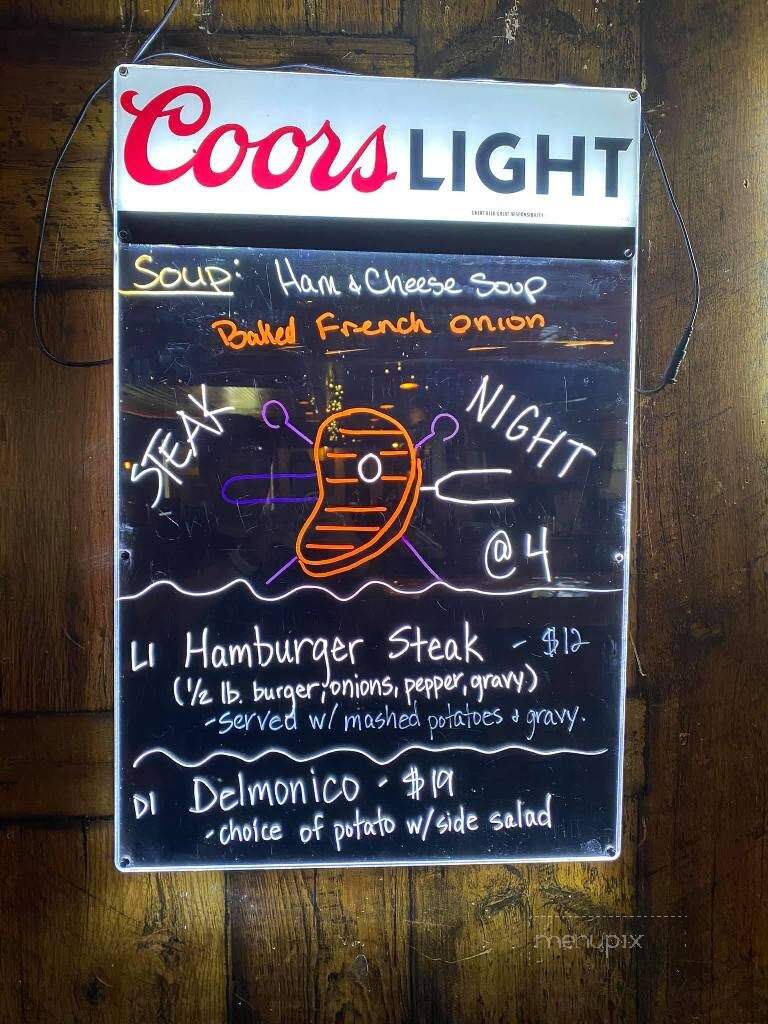 Coors LIGHT
GREAT BEER GREAT RESPONSIBILITY
Soup: Ham & Cheese Soup
Baked French Onion
STEAK NIGHT
@ 4
L1 Hamburger Steak - $12
(1/2 lb. burger; onions, pepper, gravy)
-served w/ mashed potatoes & gravy.
D1 Delmonico - $19
-choice of potato w/side salad
menupix